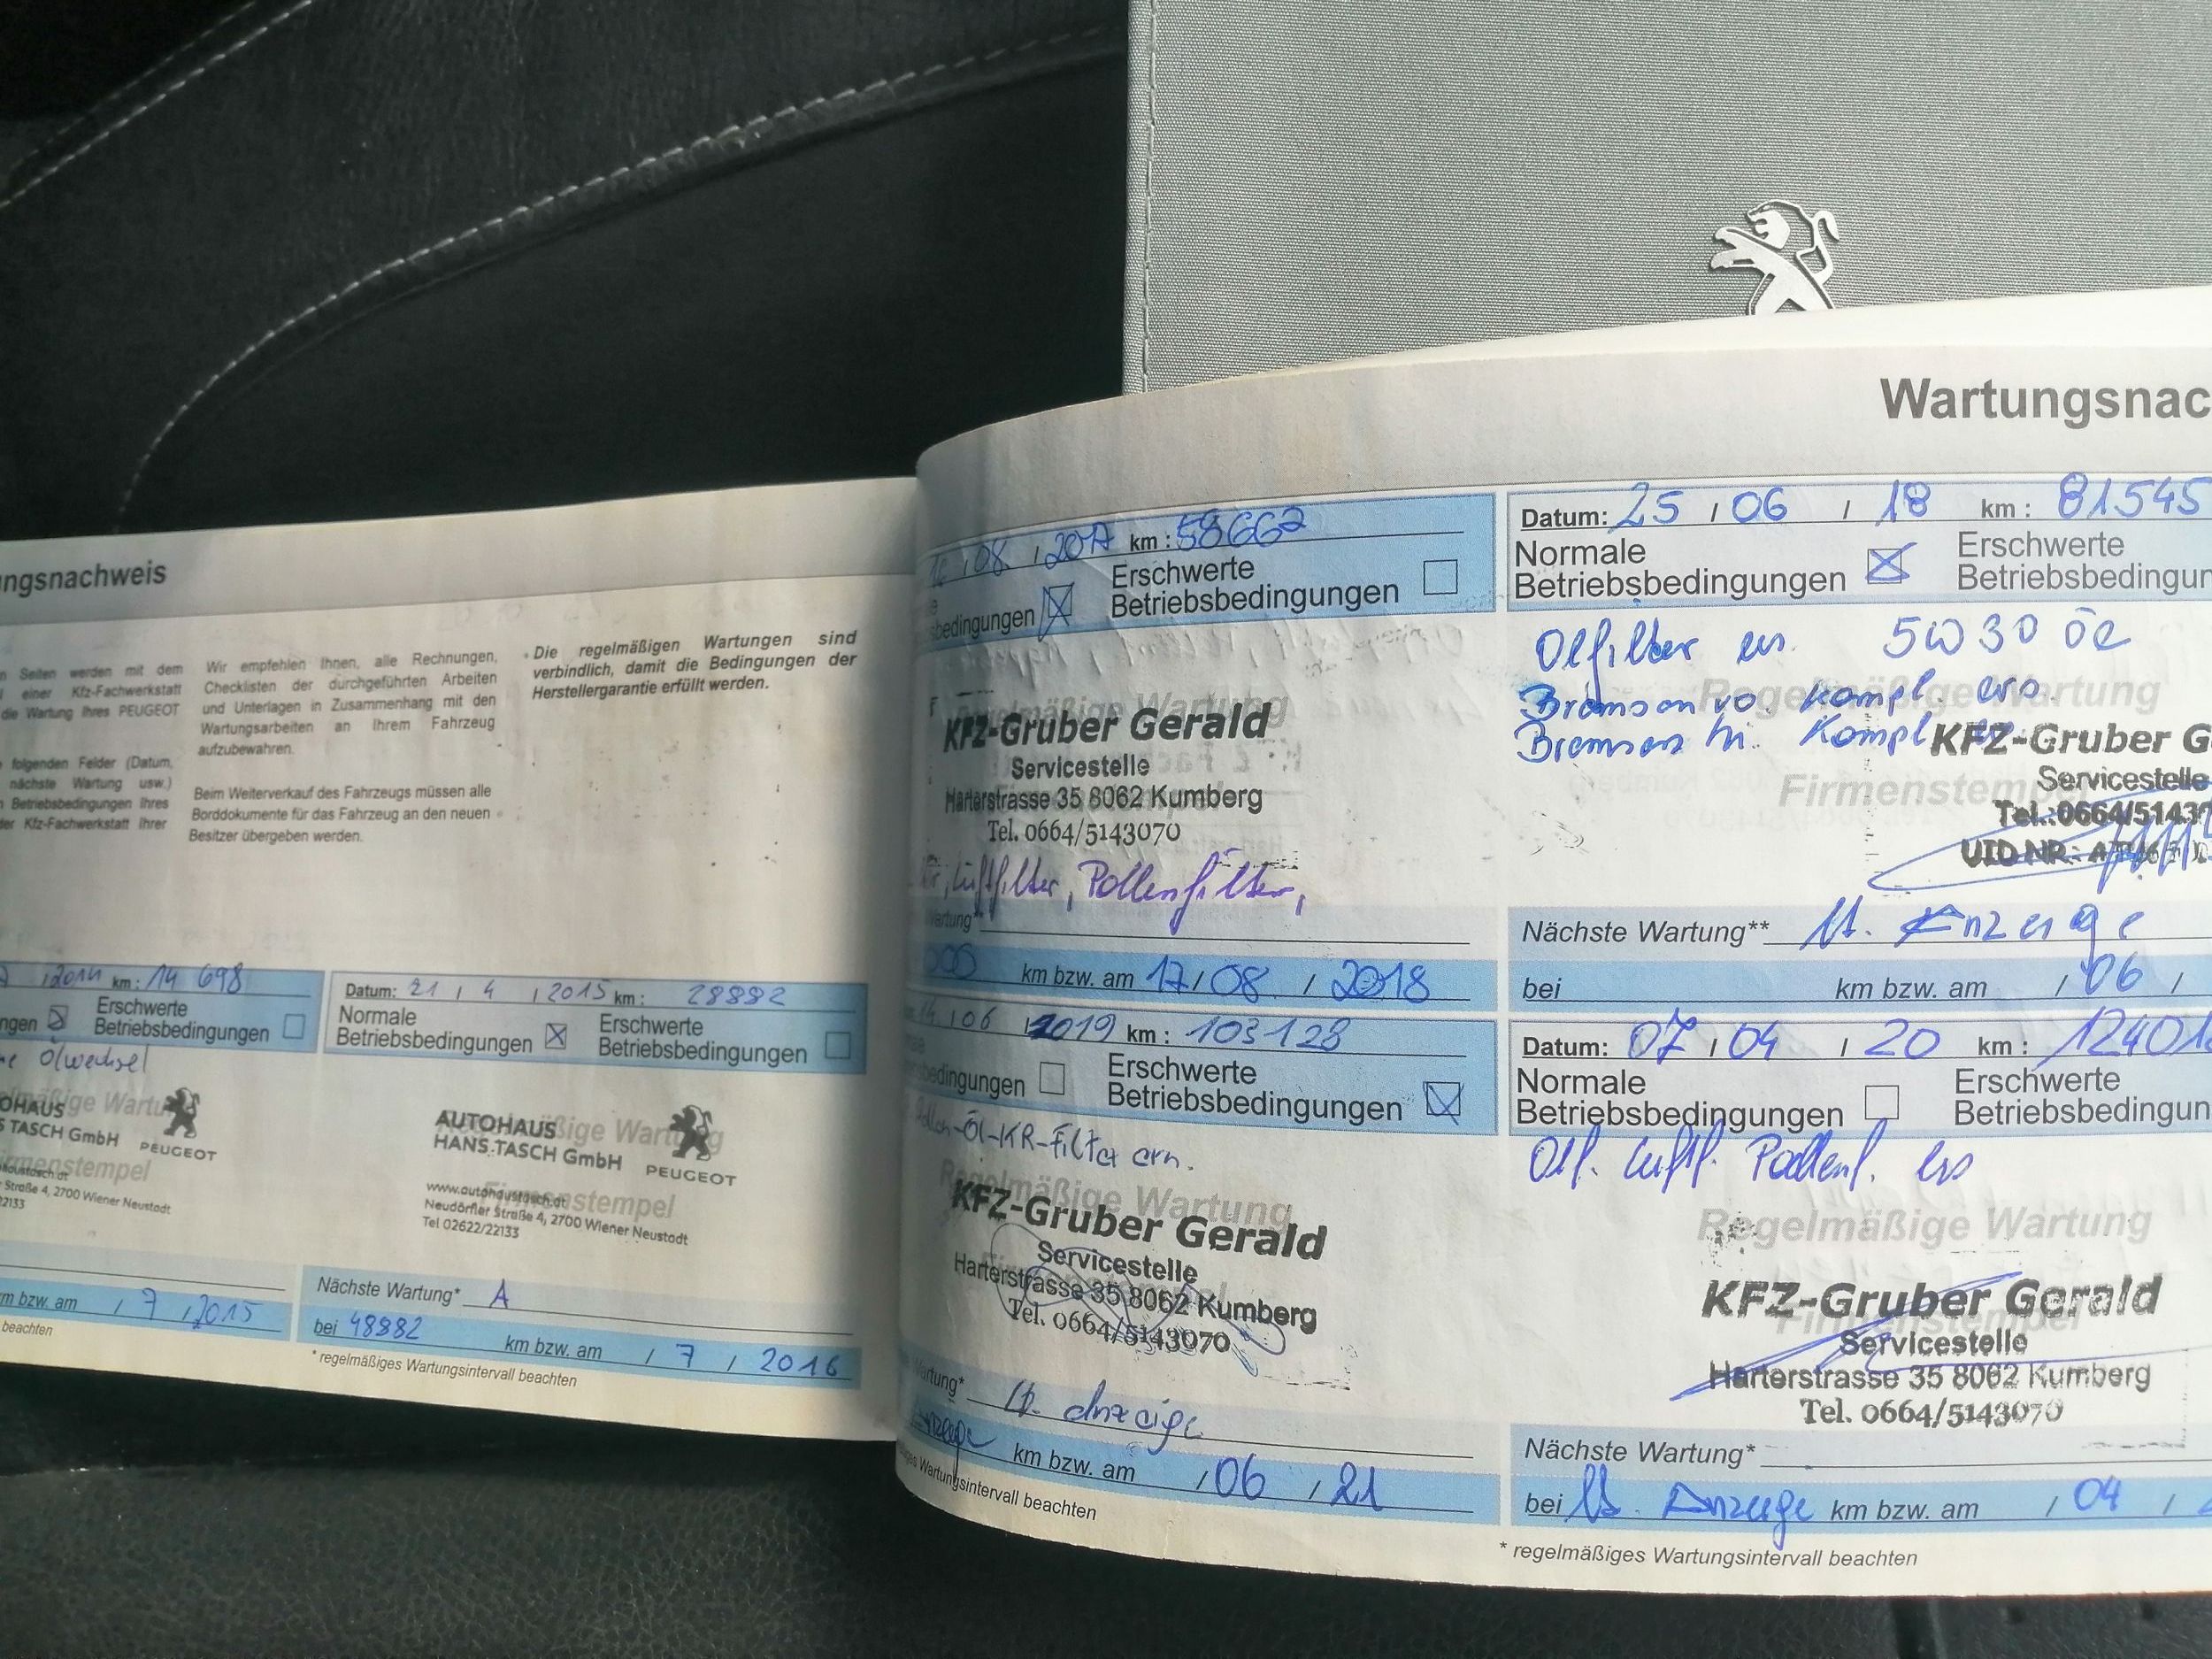 ngsnachweis
n Seiten werden mit dem
einer Kfz-Fachwerkstatt
die Wartung Ihres PEUGEOT
folgenden Felder (Datum,
nächste Wartung usw.)
Betriebsbedingungen Ihres
der Kfz-Fachwerkstatt Ihrer
Wir empfehlen Ihnen, alle Rechnungen,
Checklisten der durchgeführten Arbeiten
und Unterlagen in Zusammenhang mit den
Wartungsarbeiten an Ihrem Fahrzeug
aufzubewahren.
Beim Weiterverkauf des Fahrzeugs müssen alle
Borddokumente für das Fahrzeug an den neuen
Besitzer übergeben werden.
Die regelmäßigen Wartungen sind
verbindlich, damit die Bedingungen der
Herstellergarantie erfüllt werden.
/2014 km: 14 698
ngen Erschwerte
Betriebsbedingungen
Ölwechsel
OHAUS
S TASCH GmbH
PEUGEOT
Firmenstempel
Straße 4, 2700 Wiener Neustadt
22133
m bzw. am / 7 / 2015
beachten
Datum: 21 / 4 / 2015 km: 28882
Normale
Betriebsbedingungen
Erschwerte
Betriebsbedingungen
AUTOHAUS
HANS TASCH GmbH
PEUGEOT
Regelmäßige Wartung
Firmenstempel
www.autohaustasch.at
Neudörfler Straße 4, 2700 Wiener Neustadt
Tel 02622/22133
Nächste Wartung* A
bei 48882 km bzw. am / 7 / 2016
* regelmäßiges Wartungsintervall beachten
Wartungsnac
/ 08 / 2017 km: 58662
bedingungen
Erschwerte
Betriebsbedingungen
Regelmäßige Wartung
KFZ-Gruber Gerald
Servicestelle
Harterstrasse 35 8062 Kumberg
Tel. 0664/5143070
Luftfilter, Pollenfilter,
Wartung*
000 km bzw. am 17/ 08 / 2018
Datum: 25 / 06 / 18 km: 81545
Normale
Betriebsbedingungen
Erschwerte
Betriebsbedingun
Ölfilter 5W30 Öl
Regelmäßige Wartung
Bremsen vo. kompl. ers.
Bremsen hi. kompl
KFZ-Gruber G
Servicestelle
Firmenstempel
Tel.:0664/5143
UID NR.:
Nächste Wartung** lt. Anzeige
bei km bzw. am / 06 /
14 / 06 / 2019 km: 103128
bedingungen
Erschwerte
Betriebsbedingungen
Pollen-Öl-KR-Filter ern.
Regelmäßige Wartung
KFZ-Gruber Gerald
Servicestelle
Harterstrasse 35 8062 Kumberg
Tel. 0664/5143070
Wartung* lt. Anzeige
Anzeige km bzw. am / 06 / 21
Wartungsintervall beachten
Datum: 07 / 04 / 20 km: 12401
Normale
Betriebsbedingungen
Erschwerte
Betriebsbedingun
Ölf. Luftf. Pollenf. ers
Regelmäßige Wartung
KFZ-Gruber Gerald
Firmenstempel
Servicestelle
Harterstrasse 35 8062 Kumberg
Tel. 0664/5143070
Nächste Wartung*
bei lt. Anzeige km bzw. am / 04 /
* regelmäßiges Wartungsintervall beachten